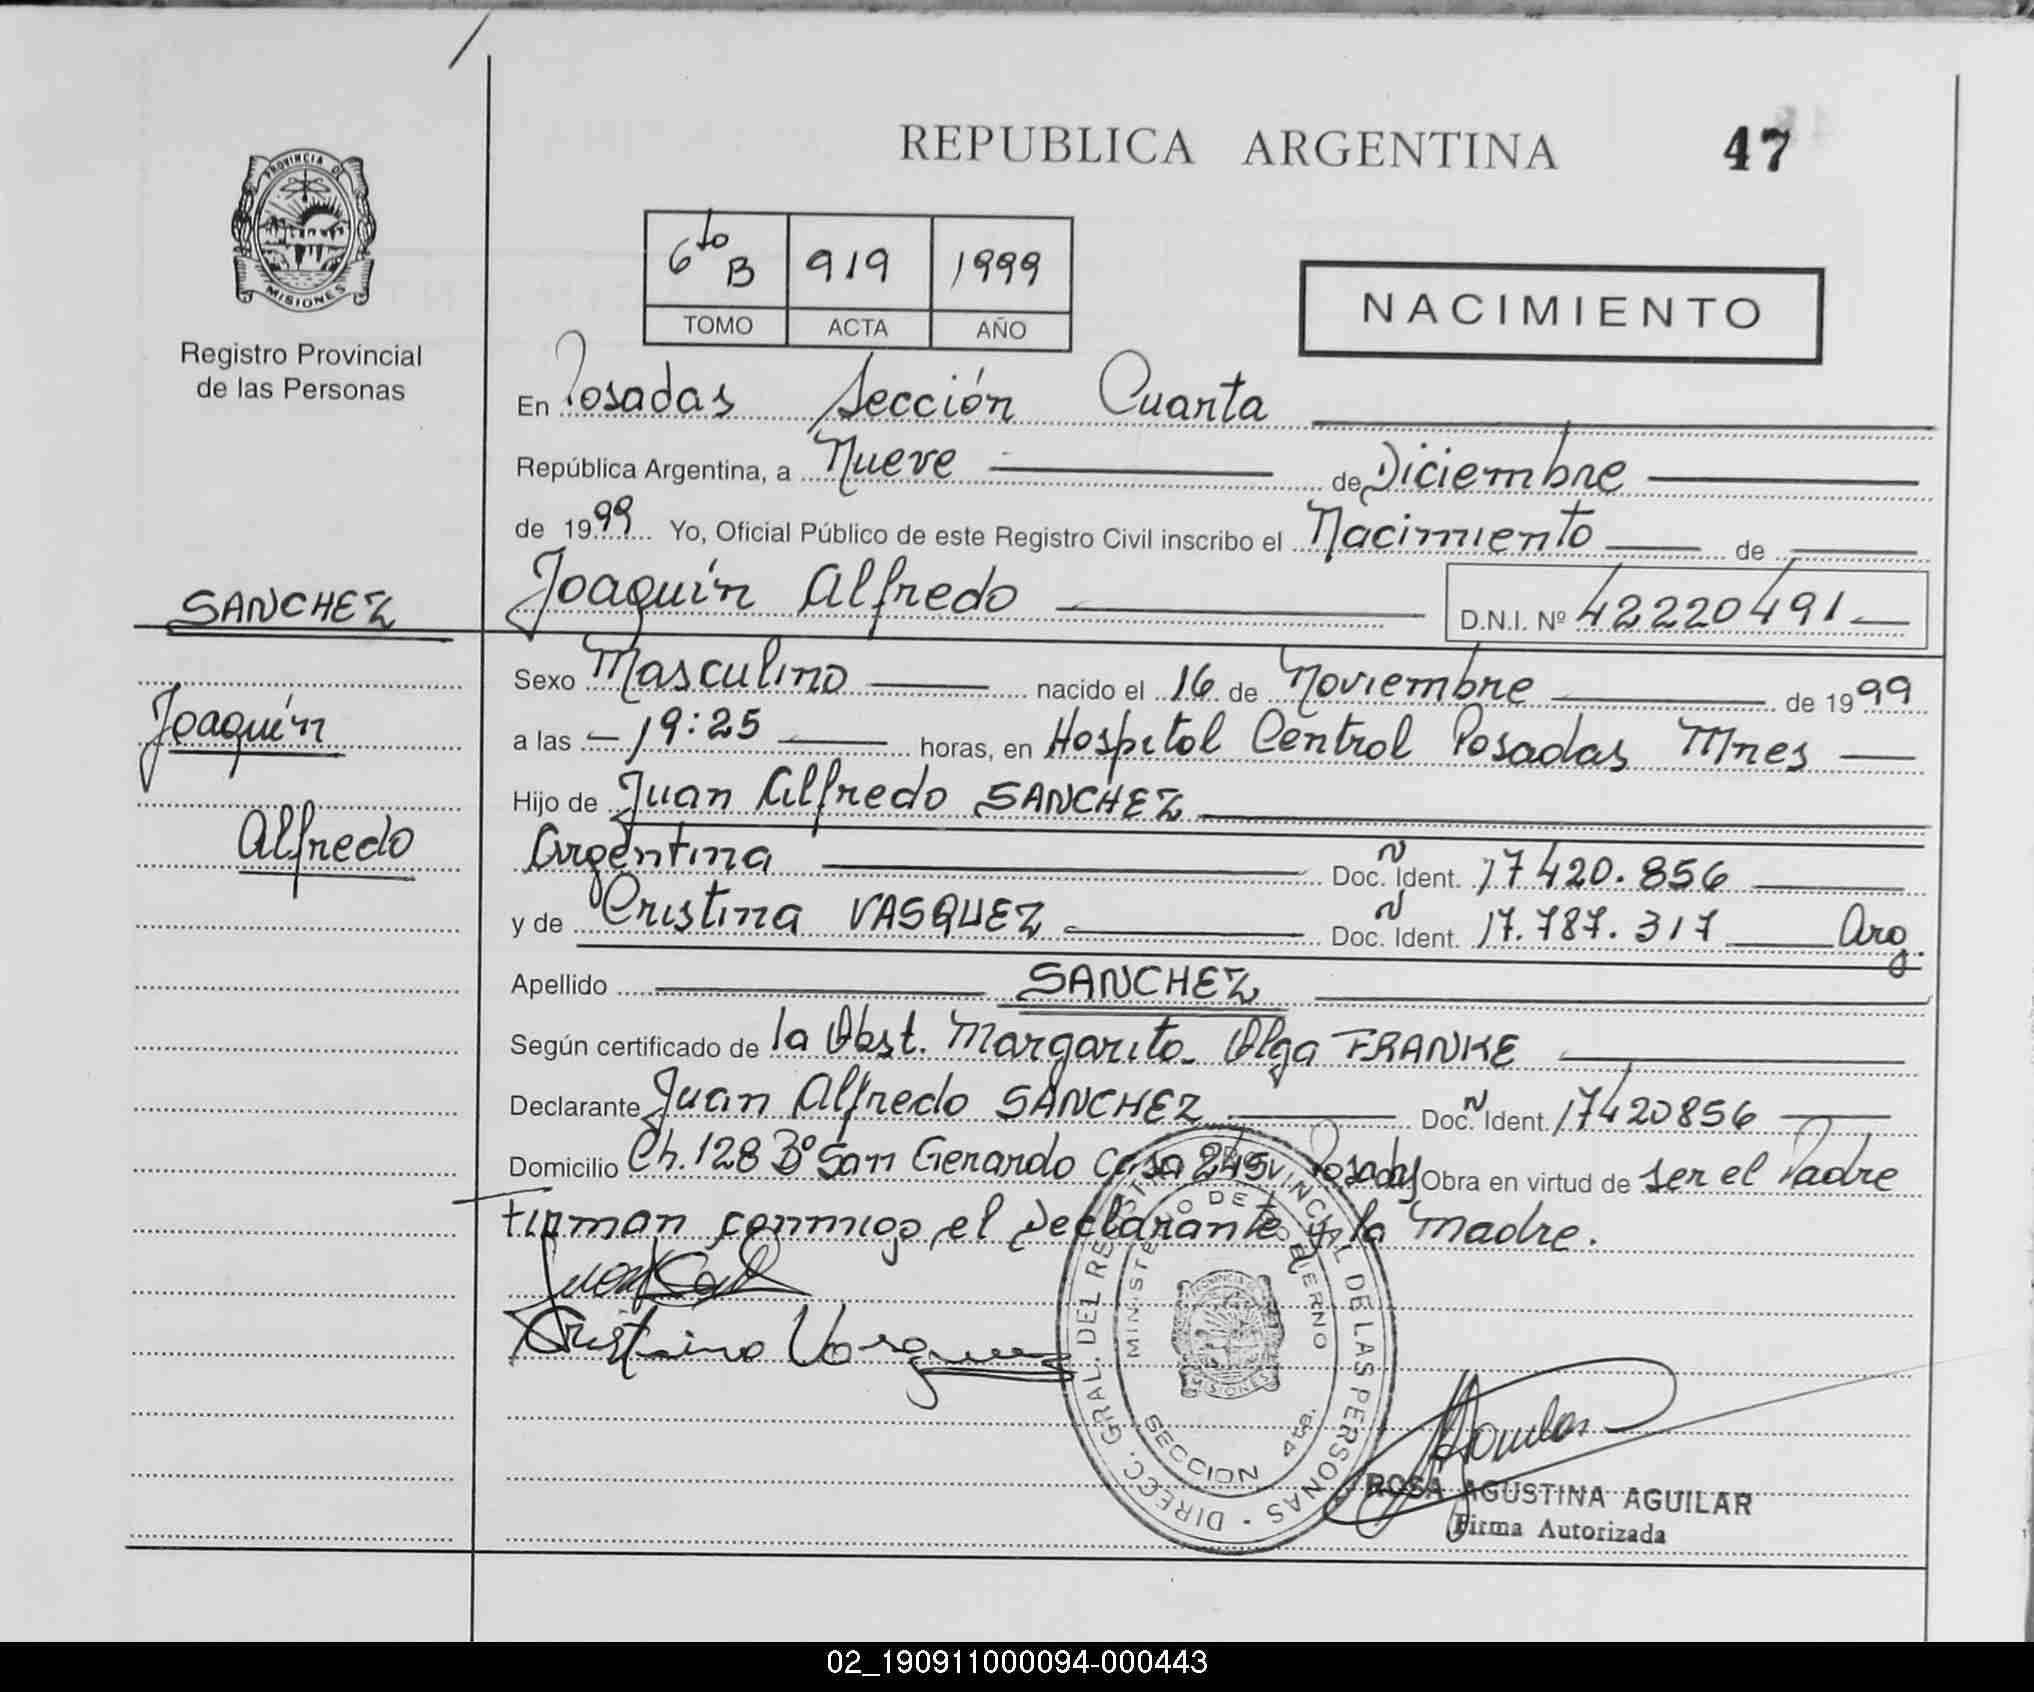 REPUBLICA ARGENTINA
47
PROVINCIA DE
MISIONES
Registro Provincial
de las Personas
6to B 919 1999
TOMO ACTA AÑO
NACIMIENTO
En Posadas Sección Cuarta
República Argentina, a Nueve de Diciembre
de 1999 Yo, Oficial Público de este Registro Civil inscribo el Nacimiento de
Joaquín Alfredo D.N.I. Nº 42220491
SANCHEZ
Joaquín
Alfredo
Sexo Masculino nacido el 16 de Noviembre de 1999
a las 19:25 horas, en Hospital Central Posadas Mnes
Hijo de Juan Alfredo SANCHEZ
Argentina Doc. N Ident. 17420.856
y de Cristina VASQUEZ Doc. N Ident. 17.787.317 Arg.
Apellido SANCHEZ
Según certificado de la Obst. Margarita Olga FRANKE
Declarante Juan Alfredo SANCHEZ Doc. N Ident. 17420856
Domicilio Ch. 128 Bº San Gerardo Casa 245 Posadas Obra en virtud de ser el Padre
Firman conmigo el Declarante y la Madre.
Cristina Vasquez
DIRECC. GRAL. DEL REGISTRO PROVINCIAL DE LAS PERSONAS
MINISTERIO DE GOBIERNO
PROVINCIA DE
MISIONES
SECCION 4ta.
ROSA AGUSTINA AGUILAR
Firma Autorizada
02_190911000094-000443